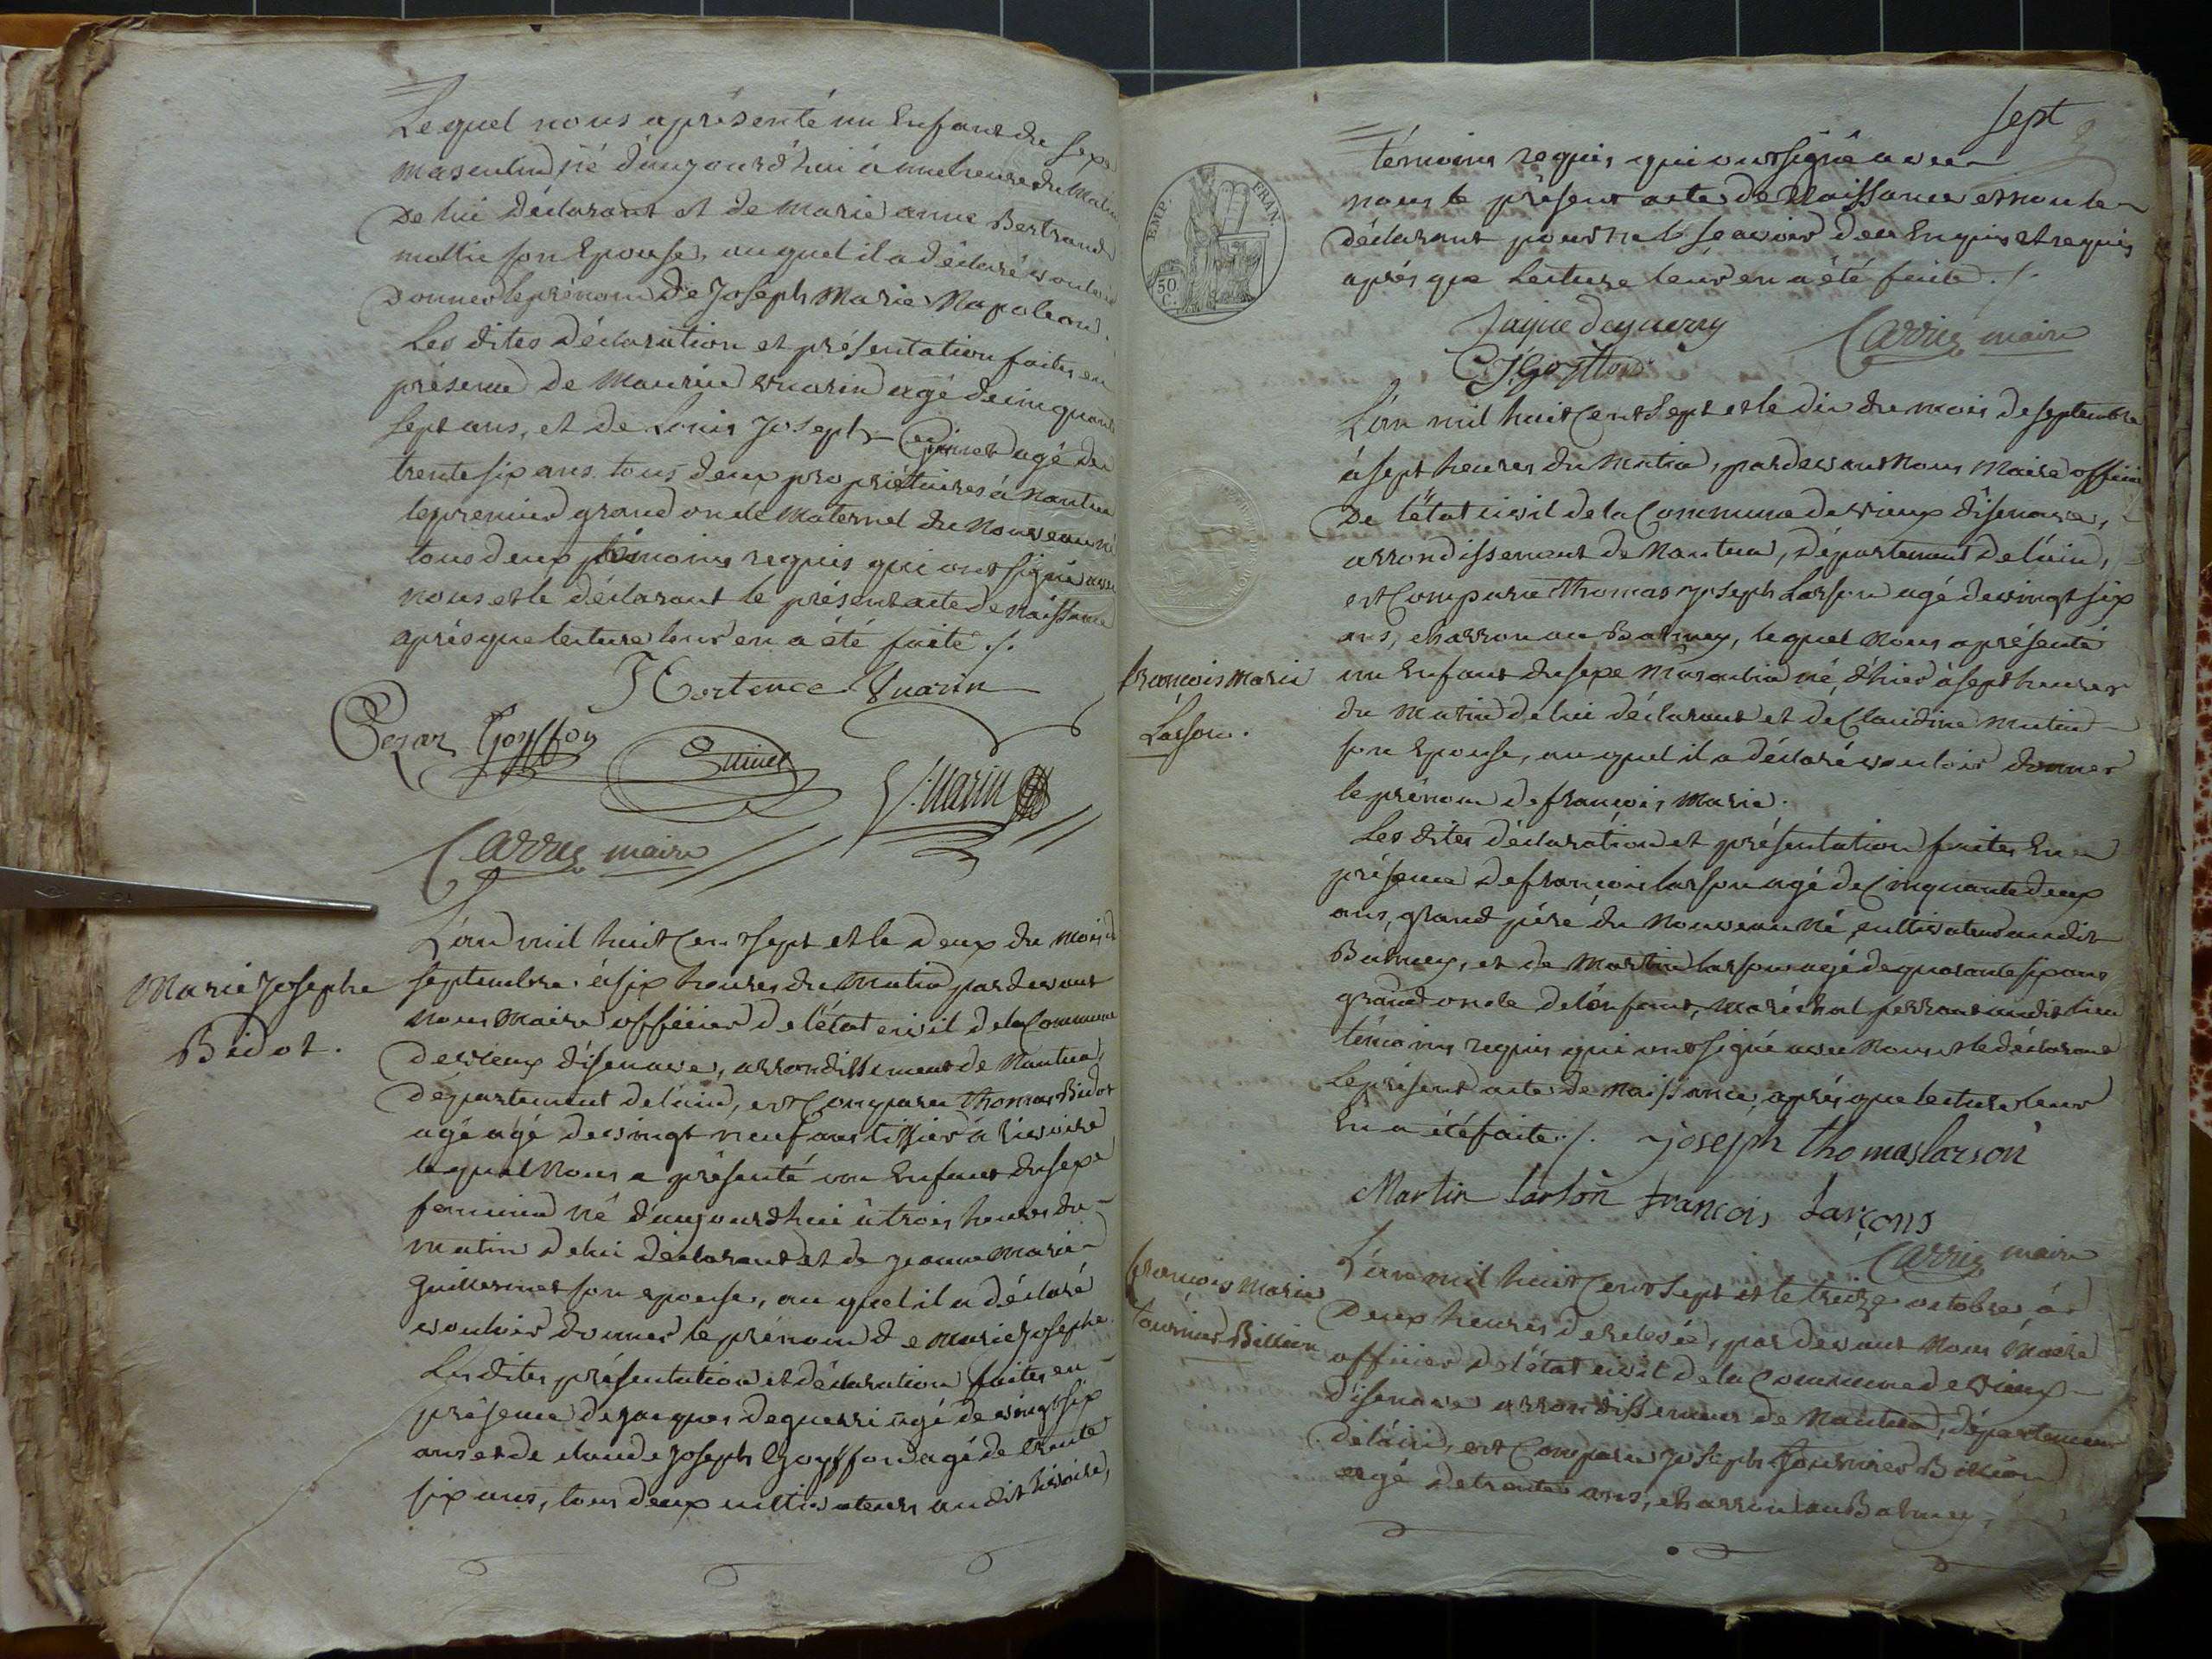 Lequel nous a présenté un Enfant du sexe
masculin né d'aujourd'hui à une heure du matin
De lui déclarant et de Marie anne Bertrand
son Epouse, auquel il a déclaré vouloir
Donner le prénom de Joseph Marie Napoléon.
Les dites Déclaration et présentation faites en
présence de Maurice vuarin agé de cinquante
sept ans, et de Louis Joseph Guinet agé de
trente six ans. tous deux propriétaires à Nantua
le premier grand oncle Maternel du Nouveau né
tous deux témoins requis qui ont signé avec
nous et le déclarant le présent acte de naissance
après que lecture leur en a été faite ./.
Hortence Vuarin
Cezar Goyffon
Guinet
Vuarin
Carrier maire
Marie Josephe
Bidot.
L'an mil huit Cent sept et le deux du mois de
septembre à six heures du Matin pardevant
nous Maire officier de l'état civil de la Commune
de vieux d'isenave, arrondissement de Nantua
département de l'ain, est Comparu thomas Bidot
agé agé de vingt neuf ans tissier à livoire
lequel Nous a présenté un Enfant du sexe
feminin né d'aujourdhui à trois heures du
matin de lui déclarant et de jeanne Marie
Guillermet son epouse, au quel il a déclaré
vouloir donner le prénom de Marie Josephe.
Les dites présentation et déclaration faites en
présence de jacques deguerri agé de vingt six
ans et de claude Joseph Goyffon agé de trente
six ans, tous deux cultivateurs au dit livoire,
sept
EMP. FRAN.
50 C.
témoins requis qui ont signé avec
nous le présent acte de Naissance et non le
déclarant pour ne le scavoir de ce Enquis et requis
après que Lecture leur en a été faite ./.
Jaque deguerry
Carrier maire
CJGoyffon
L'an mil huit Cent sept et le dix du mois de septembre
à sept heures du Matin, pardevant Nous Maire officier
De l'état civil de la Commune de vieux d'isenave,
arrondissement de Nantua, département de l'ain,
est Comparu thomas joseph Larson agé de vingt six
ans, charron au Balmey, lequel Nous a présenté
françois Marie
Larson.
un Enfant du sexe Masculin né d'hier à sept heures
du Matin de lui déclarant et de Claudine Mutin
son Epouse, au quel il a déclaré vouloir donner
le prénom de françois Marie.
Les dites déclaration et présentation faites En
présence de françois larson agé de Cinquante deux
ans, grand père du Nouveau Né, cultivateur au dit
Balmey, et de Martin larson agé de quarante six ans
grand oncle de l'enfant, Maréchal ferrant au dit lieu
témoins requis qui ont signé avec Nous et le déclarant
le présent acte de Naissance, après que lecture leur
En a été faite ./. joseph thomas larson
Martin larson francois Larçons
Carrier maire
françois Marie
tournier Billion
L'an mil huit Cent sept et le treize octobre à
Deux heures de relevée, par devant Nous Maire
officier de l'état civil de la Commune de vieux
d'isenave arrondissement de Nantua, département
de l'ain, est Comparu Joseph tournier Billion
agé de trente ans, charron au Balmey,